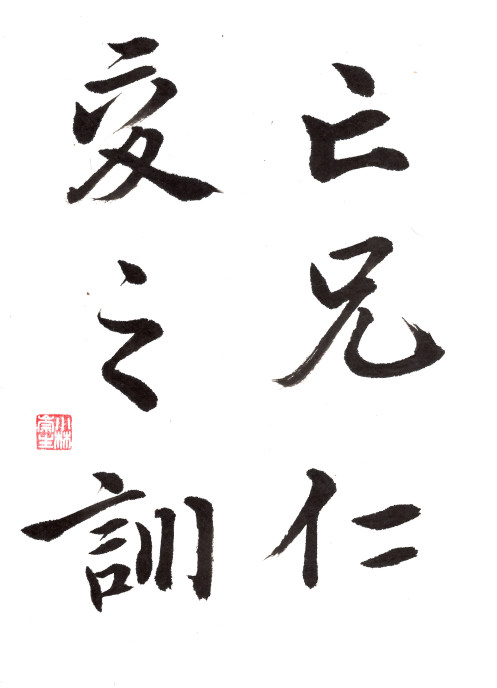 亡兄仁
愛之訓
小林